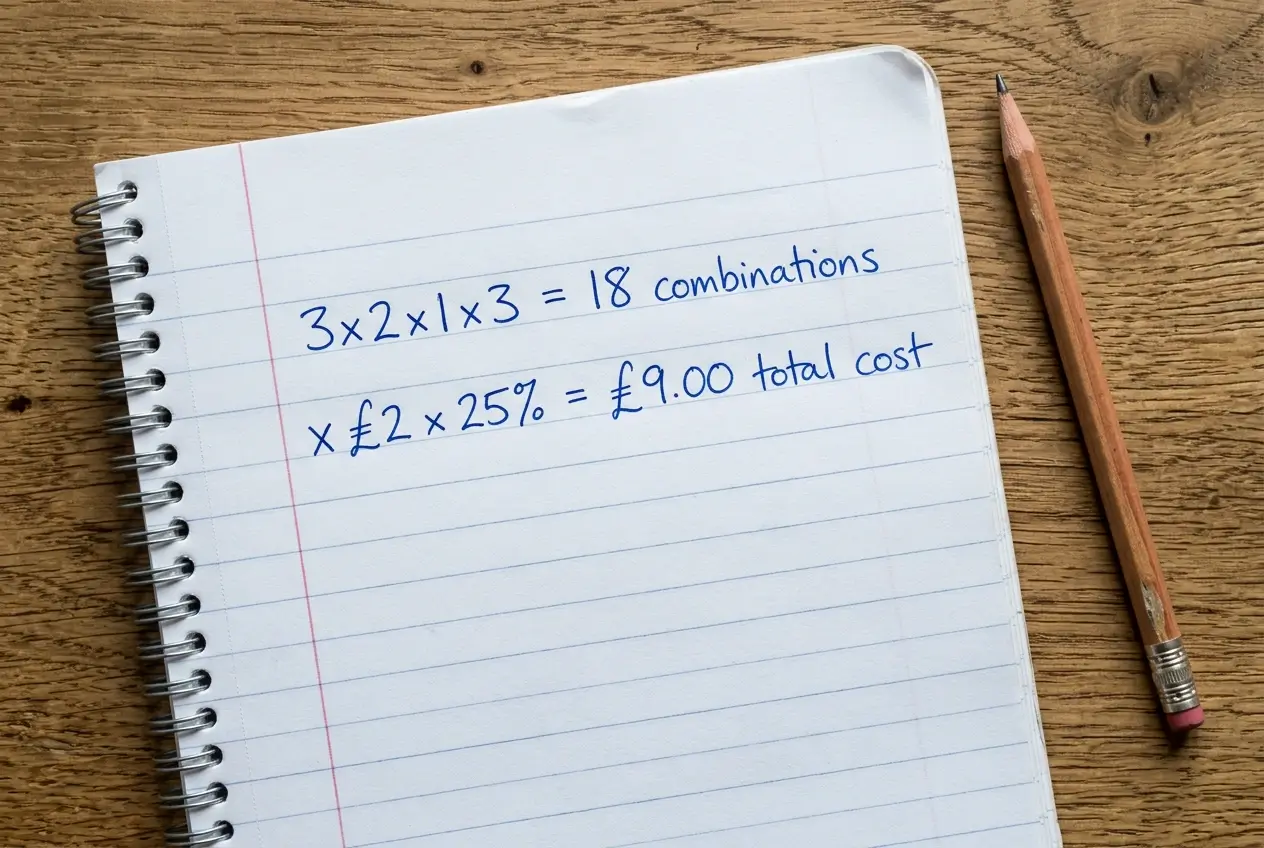 3x2x1x3 = 18 combinations
x £2 x 25% = £9.00 total cost